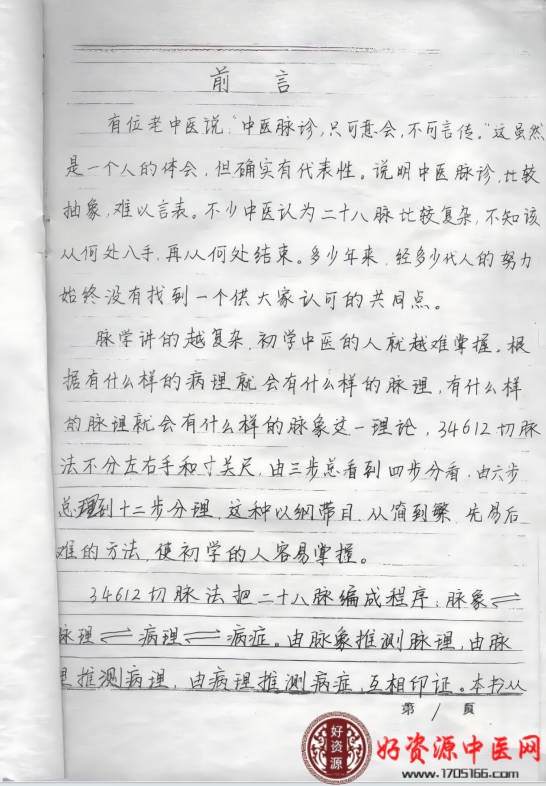 前言
有位老中医说，“中医脉诊，只可意会，不可言传。”这虽然
是一个人的体会，但确实有代表性。说明中医脉诊，比较
抽象，难以言表。不少中医认为二十八脉比较复杂，不知该
从何处入手，再从何处结束。多少年来，经多少代人的努力
始终没有找到一个供大家认可的共同点。
脉学讲的越复杂，初学中医的人就越难掌握。根
据有什么样的病理就会有什么样的脉理，有什么样
的脉理就会有什么样的脉象这一理论，34612切脉
法不分左右手和寸关尺，由三步总看到四步分看，由六步
总理到十二步分理，这种以纲带目，从简到繁，先易后
难的方法，使初学的人容易掌握。
34612切脉法把二十八脉编成程序：脉象⇌
脉理⇌病理⇌病症。由脉象推测脉理，由脉
理推测病理，由病理推测病症，互相印证。本书从
第1頁
好资源
好资源中医网
www.1705166.com